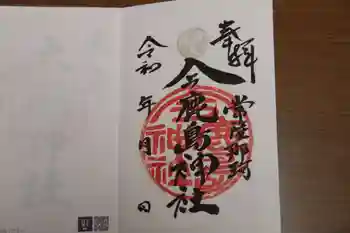 奉拝
常陸那珂
鹿島神社
令和 年 月 日